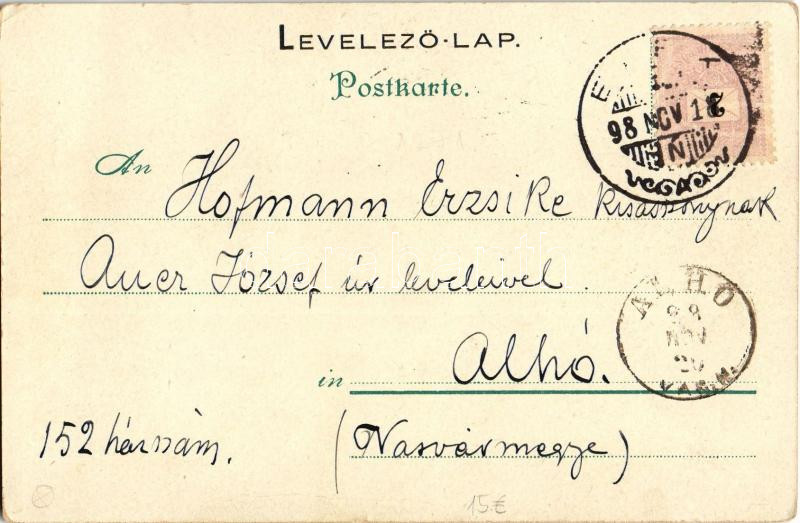 LEVELEZŐ-LAP.
Postkarte.
98 NOV 18
An Hofmann Erzsike kisasszonynak
Auer József úr leveleivel.
ALHÓ
98
NOV
20
VAS. M.
in Alhó.
152 házszám. (Vasvármegye)
15.€